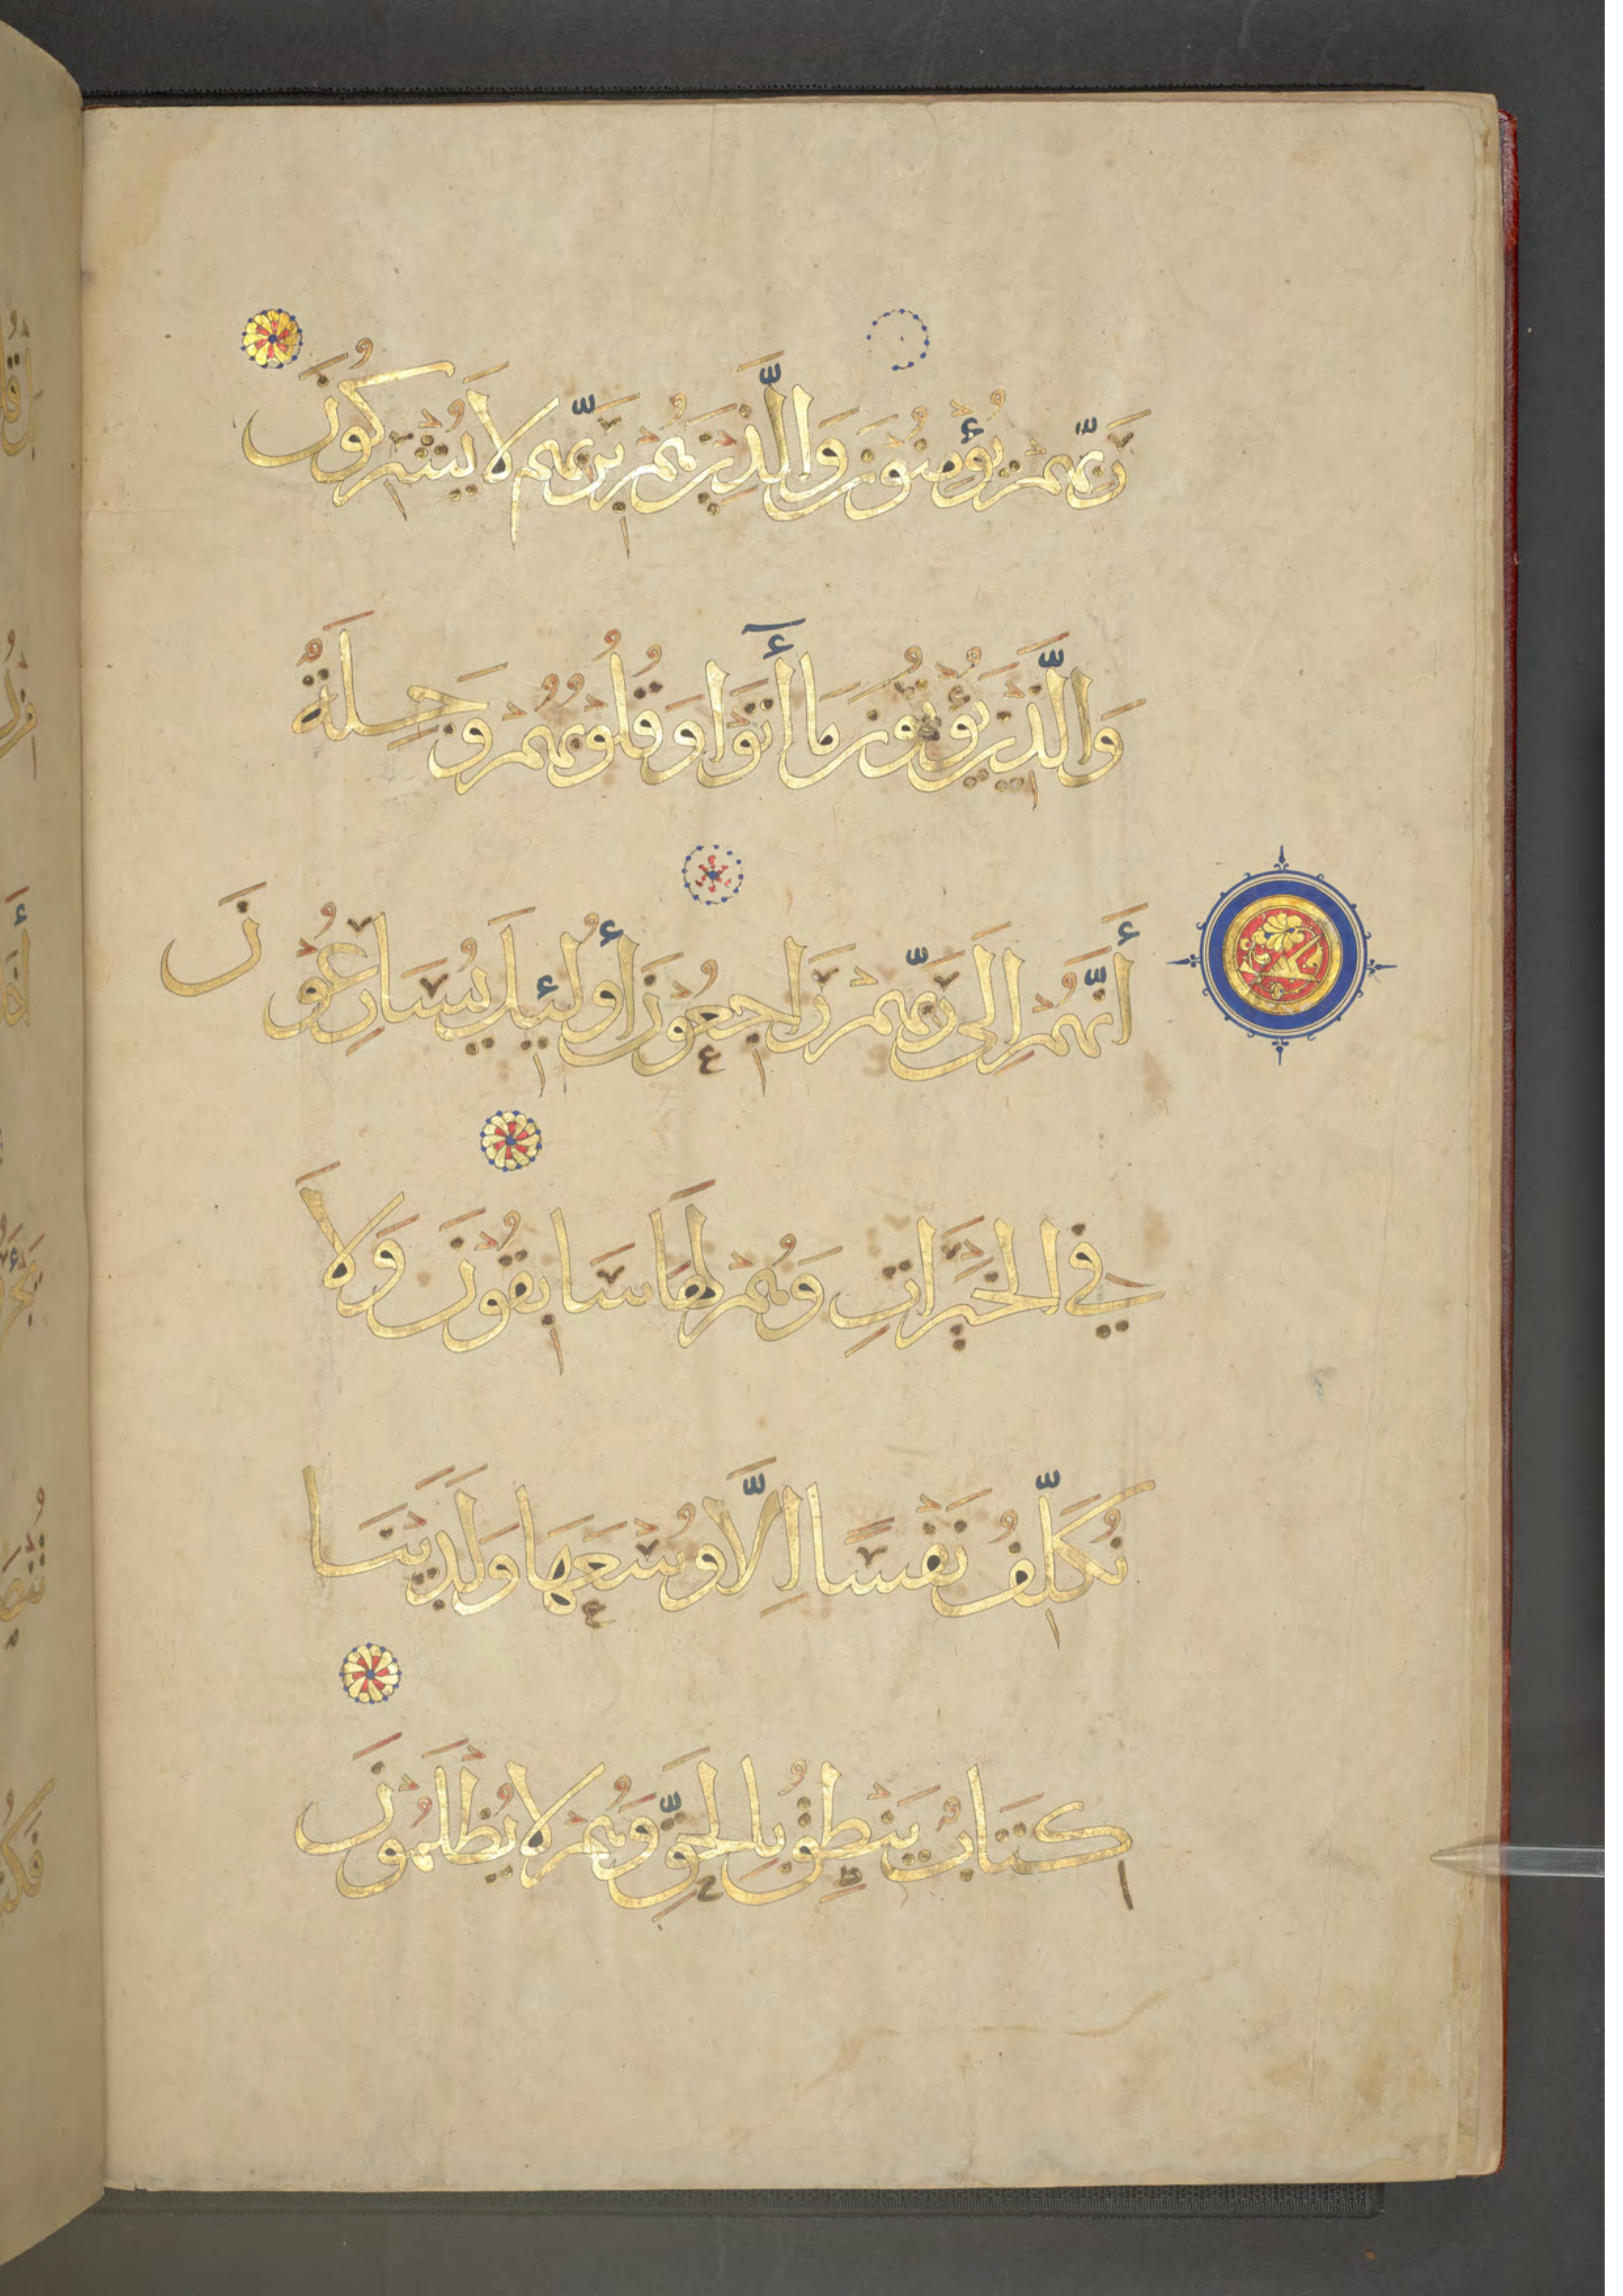 رَبِّهِمْ يُؤْمِنُونَ وَالَّذِينَ هُمْ بِرَبِّهِم لَا يُشْرِكُونَ
وَالَّذِينَ يُؤْتُونَ مَا أَتَوْا وَقُلُوبُهُمْ وَجِلَةٌ
أَنَّهُمْ إِلَى رَبِّهِمْ رَاجِعُونَ أُولَئِكَ يُسَارِعُونَ
فِي الْخَيْرَاتِ وَهُمْ لَهَا سَابِقُونَ وَلَا
نُكَلِّفُ نَفْسًا إِلَّا وُسْعَهَا وَلَدَيْنَا
كِتَابٌ يَنْطِقُ بِالْحَقِّ وَهُمْ لَا يُظْلَمُونَ